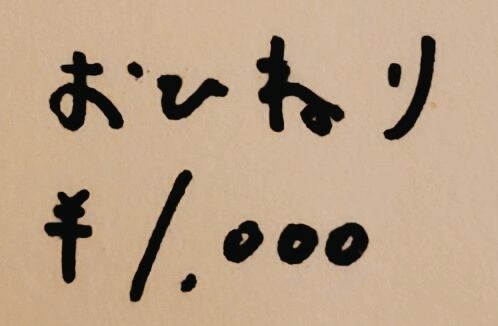 おひねり
¥1.000